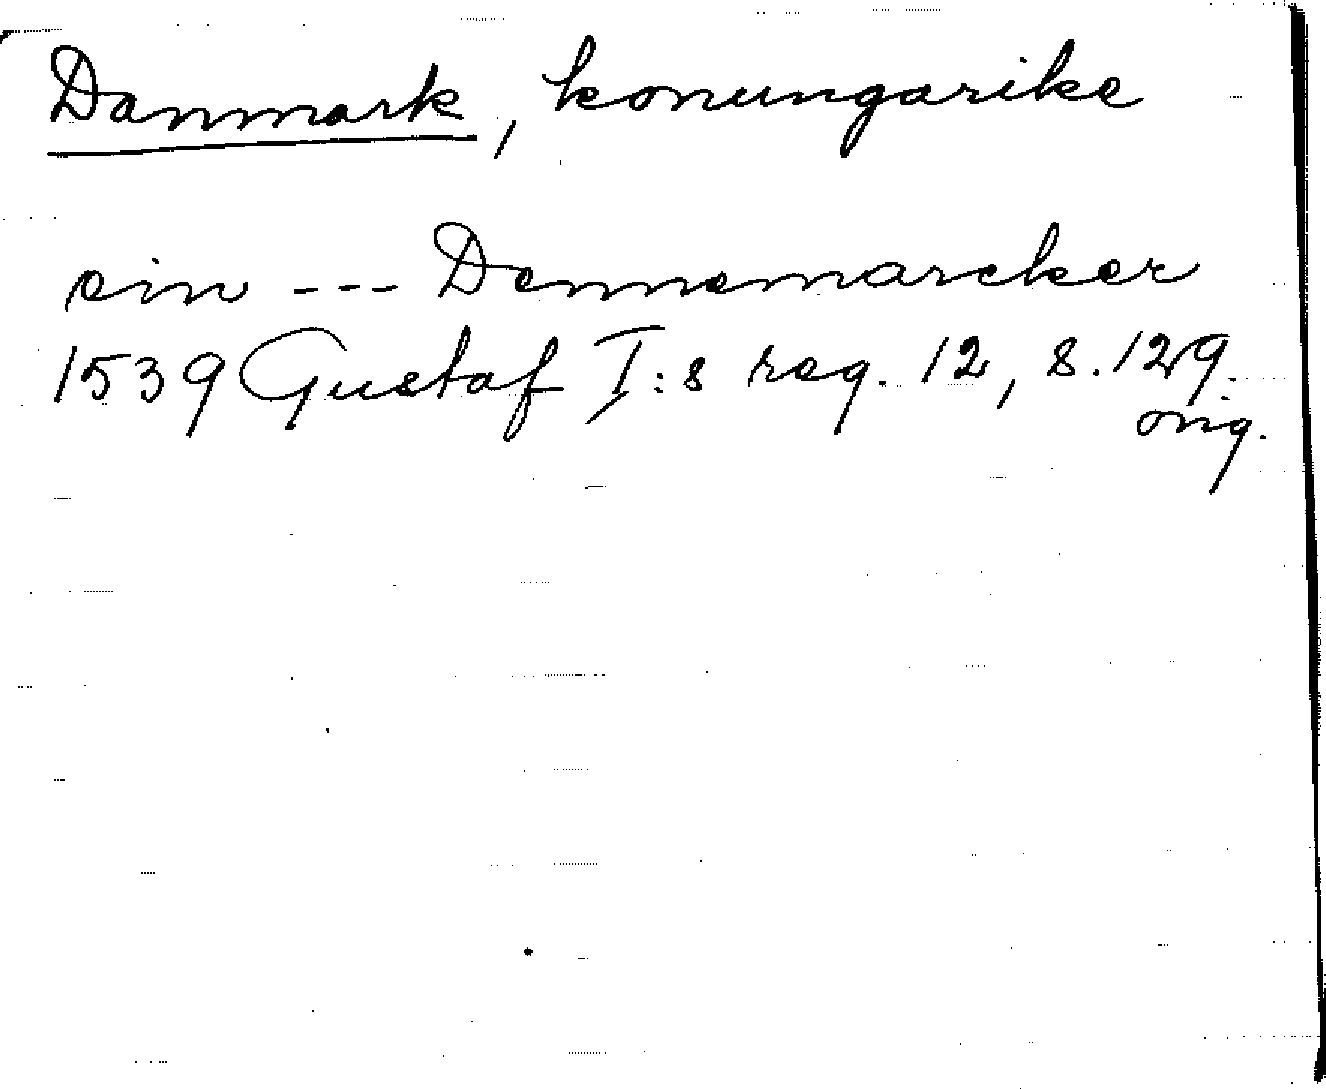 Danmark, konungarike
ein --- Dennemarcker
1539 Gustaf I:s reg. 12, s. 129.
orig.